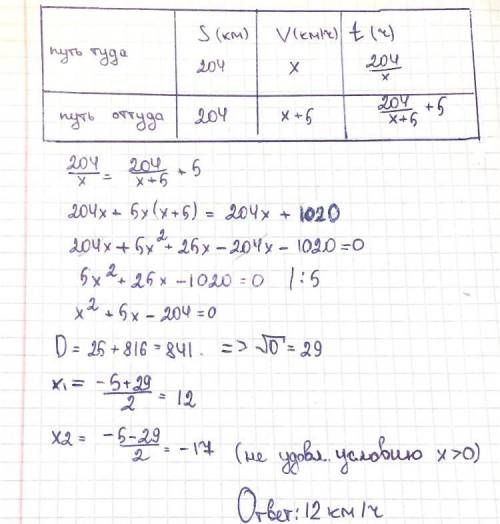 S (км) V(км/ч) t (ч)
путь туда 204 x 204/x
путь оттуда 204 x+5 204/(x+5) + 5
204/x = 204/(x+5) + 5
204x + 5x(x+5) = 204x + 1020
204x + 5x² + 25x - 204x - 1020 = 0
5x² + 25x - 1020 = 0 /:5
x² + 5x - 204 = 0
D = 25 + 816 = 841. => √D = 29
x₁ = (-5+29)/2 = 12
x2 = (-5-29)/2 = -17 (не удовл. условию x>0)
Ответ: 12 км/ч